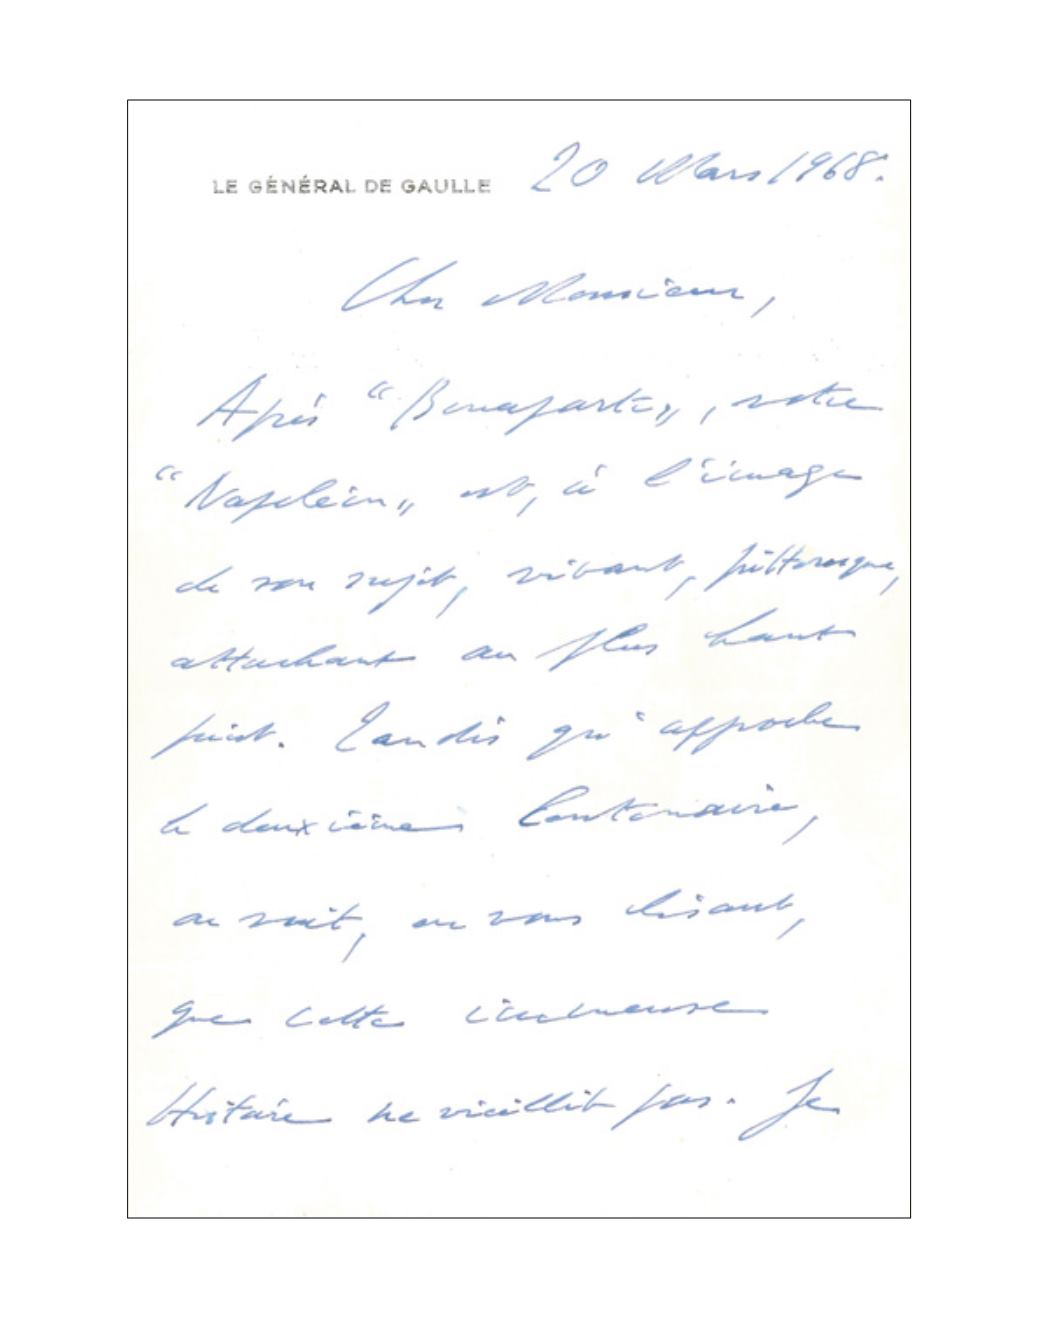 LE GÉNÉRAL DE GAULLE 20 Mars 1968.
Cher Monsieur,
Après "Bonaparte", votre
"Napoléon" est, à l'image
de son sujet, vivant, pittoresque,
attachant au plus haut
point. Tandis qu'approche
le deuxième Centenaire,
on voit, en vous lisant,
que cette immense
Histoire ne vieillit pas. Je